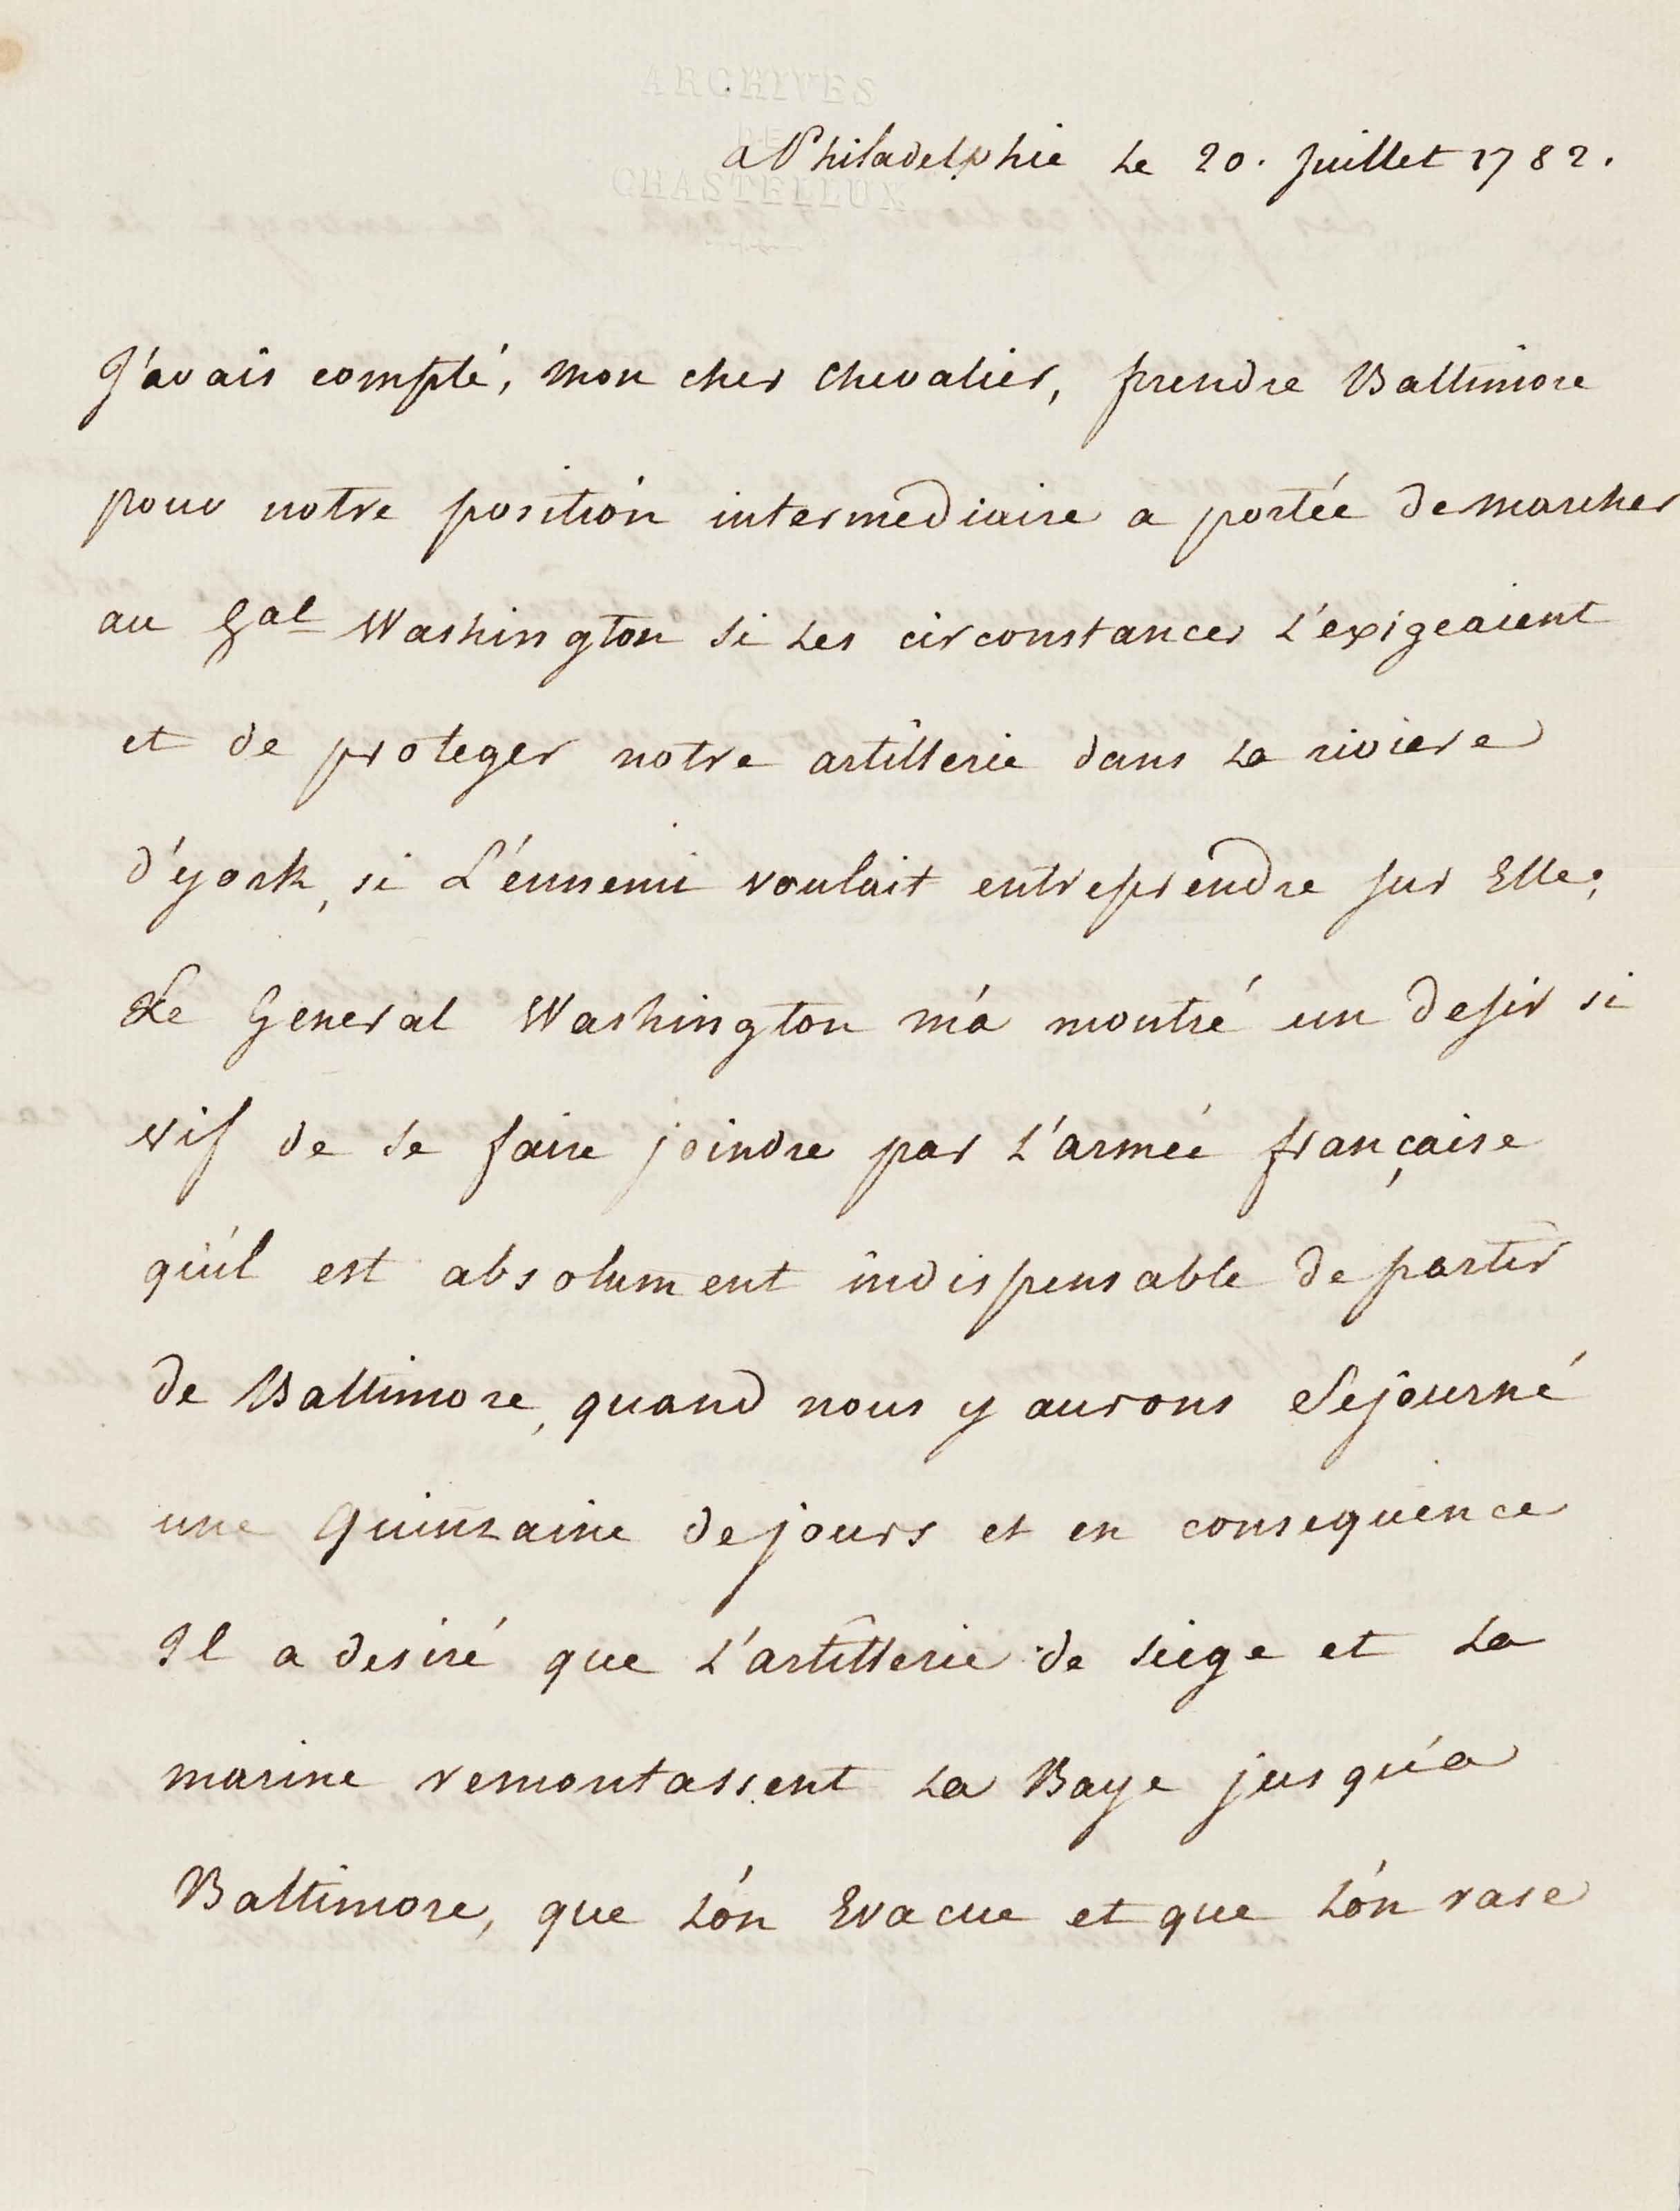 ARCHIVES
DE
CHASTELLUX
a Philadelphie Le 20. Juillet 1782.
J'avais compté, mon cher chevalier, prendre Baltimore
pour notre position intermediaire a portée de marcher
au Gal Washington si Les circonstances L'exigeaient
et de proteger notre artillerie dans La riviere
d'york, si L'énnemi voulait entreprendre sur Elle;
Le General Washington m'a montré un desir si
vif de se faire joindre par L'armée française
qu'il est absolument indispensable de partir
de Baltimore, quand nous y aurons Sejourné
une Quinzaine de jours et en consequence
Il a desiré que L'artillerie de siege et La
marine remontassent La Baye jusqu'a
Baltimore, que L'on Evacue et que L'on rase